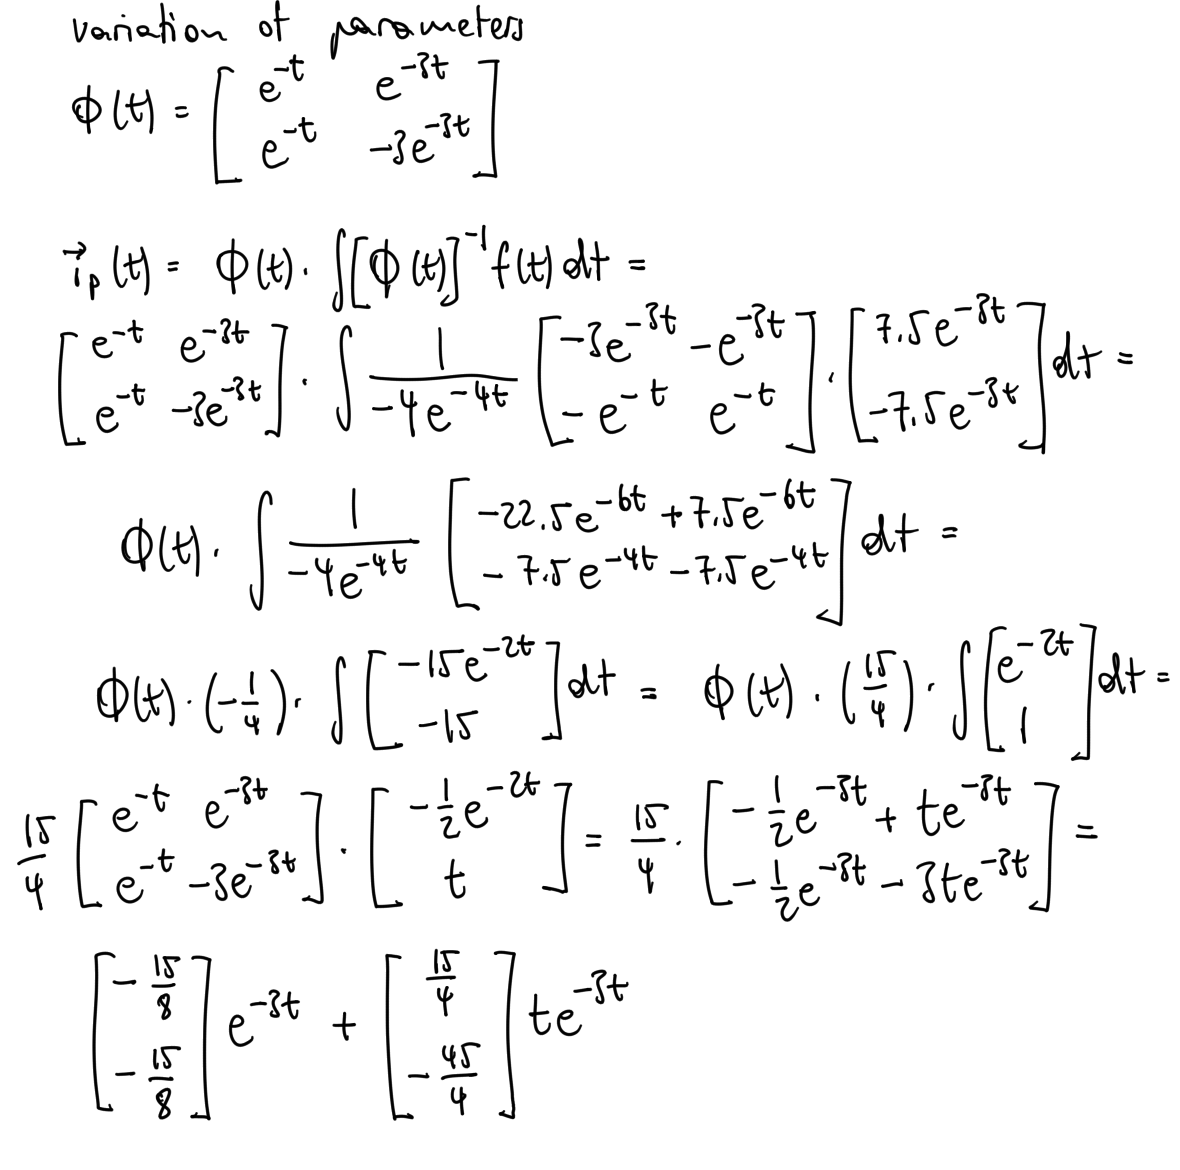 variation of parameters
ϕ(t) = [ e^{-t} e^{-3t} ; e^{-t} -3e^{-3t} ]
\vec{i}_p(t) = ϕ(t) · ∫[ϕ(t)]^{-1} f(t) dt =
[ e^{-t} e^{-3t} ; e^{-t} -3e^{-3t} ] · ∫ \frac{1}{-4e^{-4t}} [ -3e^{-3t} -e^{-3t} ; -e^{-t} e^{-t} ] · [ 7.5e^{-3t} ; -7.5e^{-3t} ] dt =
ϕ(t) · ∫ \frac{1}{-4e^{-4t}} [ -22.5e^{-6t} + 7.5e^{-6t} ; -7.5e^{-4t} - 7.5e^{-4t} ] dt =
ϕ(t) · (-\frac{1}{4}) · ∫ [ -15e^{-2t} ; -15 ] dt = ϕ(t) · (\frac{15}{4}) · ∫ [ e^{-2t} ; 1 ] dt =
\frac{15}{4} [ e^{-t} e^{-3t} ; e^{-t} -3e^{-3t} ] · [ -\frac{1}{2}e^{-2t} ; t ] = \frac{15}{4} · [ -\frac{1}{2}e^{-3t} + te^{-3t} ; -\frac{1}{2}e^{-3t} - 3te^{-3t} ] =
[ -\frac{15}{8} ; -\frac{15}{8} ] e^{-3t} + [ \frac{15}{4} ; -\frac{45}{4} ] te^{-3t}